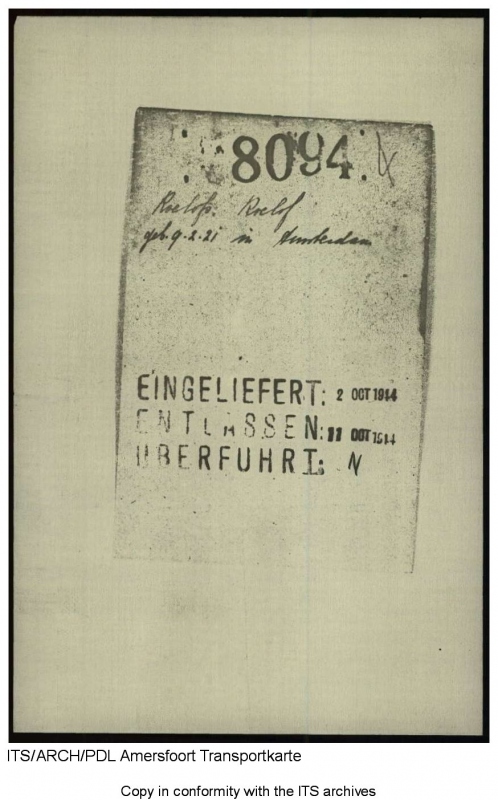 8094.
Roelofs. Roelof
geb. 9.2.21 in Amsterdam
EINGELIEFERT: 2 OCT 1944
ENTLASSEN: 11 OCT 1944
ÜBERFUHRT: N
ITS/ARCH/PDL Amersfoort Transportkarte
Copy in conformity with the ITS archives